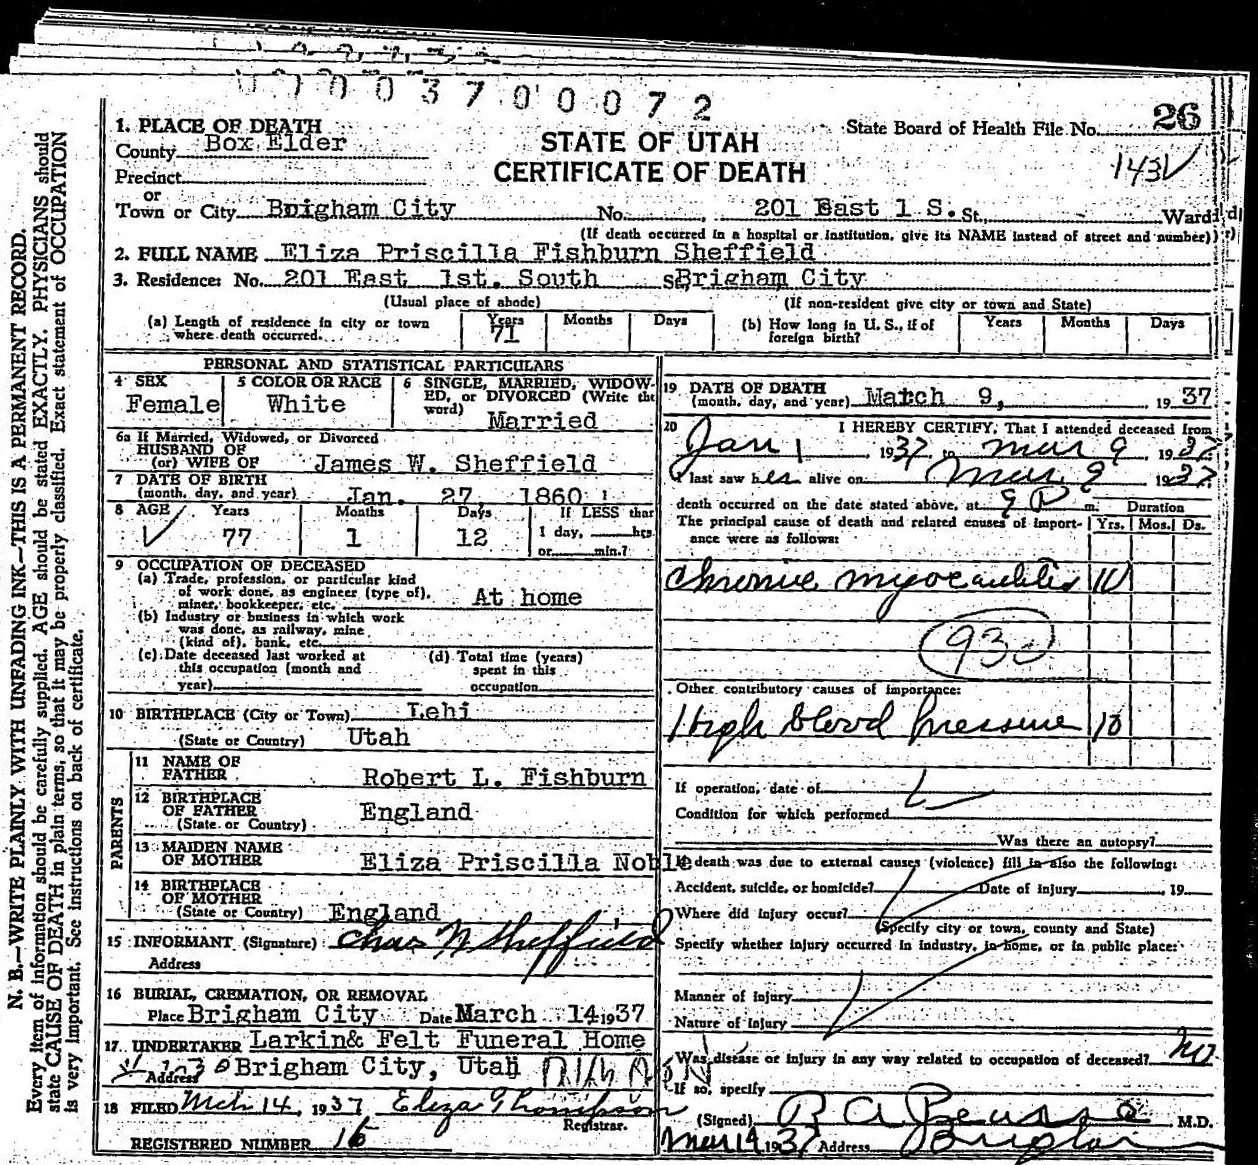 0 0 0 3 7 0 0 0 7 2
1. PLACE OF DEATH
County Box Elder
Precinct
or
Town or City Brigham City No. , 201 East 1 S. St., Ward
STATE OF UTAH
CERTIFICATE OF DEATH
State Board of Health File No. 26
143
(If death occurred in a hospital or institution, give its NAME instead of street and number)
2. FULL NAME Eliza Priscilla Fishburn Sheffield
3. Residence: No. 201 East 1st. South Brigham City
(Usual place of abode) (If non-resident give city or town and State)
(a) Length of residence in city or town where death occurred. Years 71 Months Days
(b) How long in U. S., if of foreign birth? Years Months Days
PERSONAL AND STATISTICAL PARTICULARS
4 SEX Female
5 COLOR OR RACE White
6 SINGLE, MARRIED, WIDOW-
ED, or DIVORCED (Write the
word) Married
6a If Married, Widowed, or Divorced
HUSBAND OF
(or) WIFE OF James W. Sheffield
7 DATE OF BIRTH
(month, day, and year) Jan. 27, 1860
8 AGE Years 77 Months 1 Days 12
If LESS than
1 day, hrs
or min.?
9 OCCUPATION OF DECEASED
(a) Trade, profession, or particular kind
of work done, as engineer (type of),
miner, bookkeeper, etc. At home
(b) Industry or business in which work
was done, as railway, mine
(kind of), bank, etc.
(c) Date deceased last worked at
this occupation (month and
year)
(d) Total time (years)
spent in this
occupation
10 BIRTHPLACE (City or Town) Lehi
(State or Country) Utah
PARENTS
11 NAME OF
FATHER Robert L. Fishburn
12 BIRTHPLACE
OF FATHER England
(State or Country)
13 MAIDEN NAME
OF MOTHER Eliza Priscilla Noble
14 BIRTHPLACE
OF MOTHER
(State or Country) England
15 INFORMANT (Signature) Chas N Sheffield
Address
16 BURIAL, CREMATION, OR REMOVAL
Place Brigham City Date March 14 1937
17. UNDERTAKER Larkin& Felt Funeral Home
Address Brigham City, Utah
18 FILED Mch 14, 1937 Eliza Thompson
Registrar.
REGISTERED NUMBER 16
19 DATE OF DEATH
(month, day, and year) March 9, 1937
20 I HEREBY CERTIFY, That I attended deceased from
Jan 1 1937, to Mar 9 1937
I last saw her alive on Mar 9 1937
death occurred on the date stated above, at 9 P m.
The principal cause of death and related causes of import-
ance were as follows:
Duration
Yrs. Mos. Ds.
Chronic myocarditis 10
93
Other contributory causes of importance:
High blood pressure 10
If operation, date of
Condition for which performed
Was there an autopsy?
If death was due to external causes (violence) fill in also the following:
Accident, suicide, or homicide? Date of injury , 19
Where did injury occur?
(Specify city or town, county and State)
Specify whether injury occurred in industry, in home, or in public place:
Manner of injury
Nature of injury
Was disease or injury in any way related to occupation of deceased? No
If so, specify
(Signed) R A Pearse M.D.
Mar 14 1937 Address Brigham
N. B.—WRITE PLAINLY WITH UNFADING INK—THIS IS A PERMANENT RECORD.
Every item of information should be carefully supplied. AGE should be stated EXACTLY. PHYSICIANS should
state CAUSE OF DEATH in plain terms, so that it may be properly classified. Exact statement of OCCUPATION
is very important. See instructions on back of certificate.